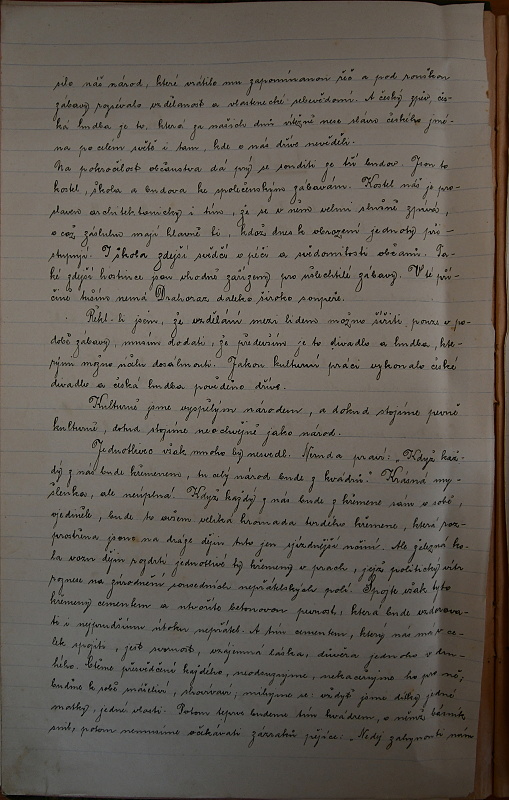 silo náš národ, které vrátilo mu zapomínanou řeč a pod rouškou
zábavy rozsévalo vzdělanost a vlastenecké sebevědomí. A český zpěv, čes-
ká hudba je to, která za našich dnů vítězně nese slávu českého jmé-
na po celém světě i tam, kde o nás dříve nevěděli.
Na pokročilost občanstva dá prý se souditi ze tří budov. Jsou to
kostel, škola a budova ke společenským zábavám. Kostel náš je pro-
slaven architektonicky i tím, že se v něm velmi slušně zpívá,
o což zásluhu mají hlavně ti, kdož dnes k obrození jednoty při-
stupují. I škola zdejší svědčí o péči a svědomitosti občanů. Ta-
ké zdejší hostince jsou vhodně zařízeny pro ušlechtilé zábavy. V té pří-
čině tuším nemá Drahoraz daleko široko soupeře.
Řekl-li jsem, že vzdělání mezi lidem možno šířiti pouze v po-
době zábavy, musím dodati, že především je to divadlo a hudba, kte-
rými možno účelu dosáhnouti. Jakou kulturní práci vykonalo české
divadlo a česká hudba pověděno dříve.
Kulturně jsme vyspělým národem, a dokud stojíme pevně
kulturně, dotud stojíme neochvějně jako národ.
Jednotlivec však mnoho by nesvedl. Neruda praví: „Když kaž-
dý z nás bude křemenem, tu celý národ bude z kvádrů." Krásná my-
šlenka, ale neúplná. Když každý z nás bude z křemene sám o sobě,
ojediněle, bude to ovšem veliká hromada tvrdého křemene, která roz-
prostřena jsouc na dráze dějin tuto jen sjízdnější učiní. Ale železná ko-
la vozu dějin rozdrtí jednotlivé ty křemeny v prach, jejž politický vítr
roznese na zúrodnění sousedních nepřátelských polí. Spojte však tyto
křemeny cementem a utvoříte betonovou pevnost, která bude vzdorova-
ti i nejprudšímu útoku nepřátel. A tím cementem, který nás má v ce-
lek spojiti, jest svornost, vzájemná láska, důvěra jednoho v dru-
hého. Ctěme přesvědčení každého, neodsuzujme, nekaceřujme ho pro ně,
buďme k sobě snášeliví, shovívaví; milujme se: vždyť jsme dítky jedné
matky, jedné vlasti. Potom teprve budeme tím kvádrem, o němž básník
snil, potom nemusíme očekávati zázraků pějíce: „Nedej zahynouti nám